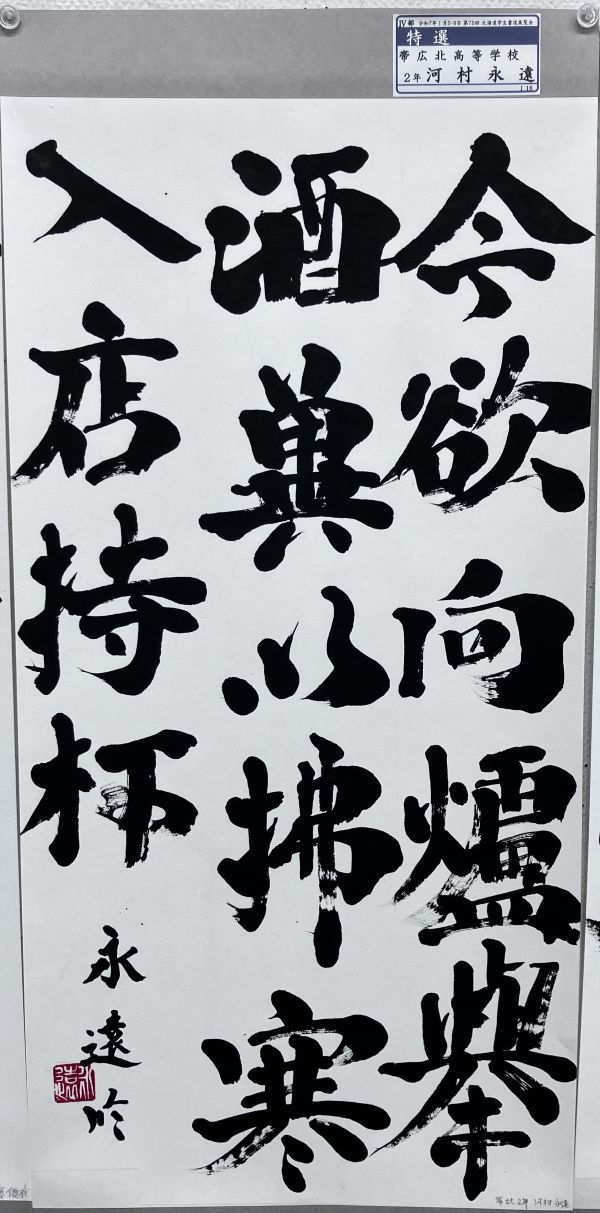 Ⅳ部 令和7年1月5-9日 第75回 北海道学生書道展覧会
特選
帯広北高等学校
2年 河村永遠
116
今欲向爐舉
酒冀以拂寒
入店持杯
永遠
帯北2年 河村永遠